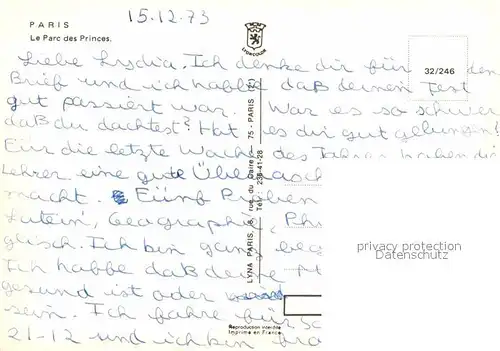 15.12.73
PARIS
Le Parc des Princes.
LYNCOLOR
32/246
Liebe Lydia, Ich denke dir für den
Brief und ich habbe daß deinen Test
gut passiert war. War es so schwer
daß du dachtest? Hat es dir gut gelungen?
Für die letzte Woche des Jahres haben die
Lehrer eine gute Überrasch
macht. Fünf Proben
Latein, Geographie, Phi
glisch. Ich bin ganz
Ich habbe daß deine
gesund ist oder
sein. Ich fahre für
21-12 und ich bin
LYNA PARIS, 8, rue du Caire - 75 - PARIS (2)
Tél : 236-41-28
privacy protection
Datenschutz
Reproduction interdite
Imprimé en France